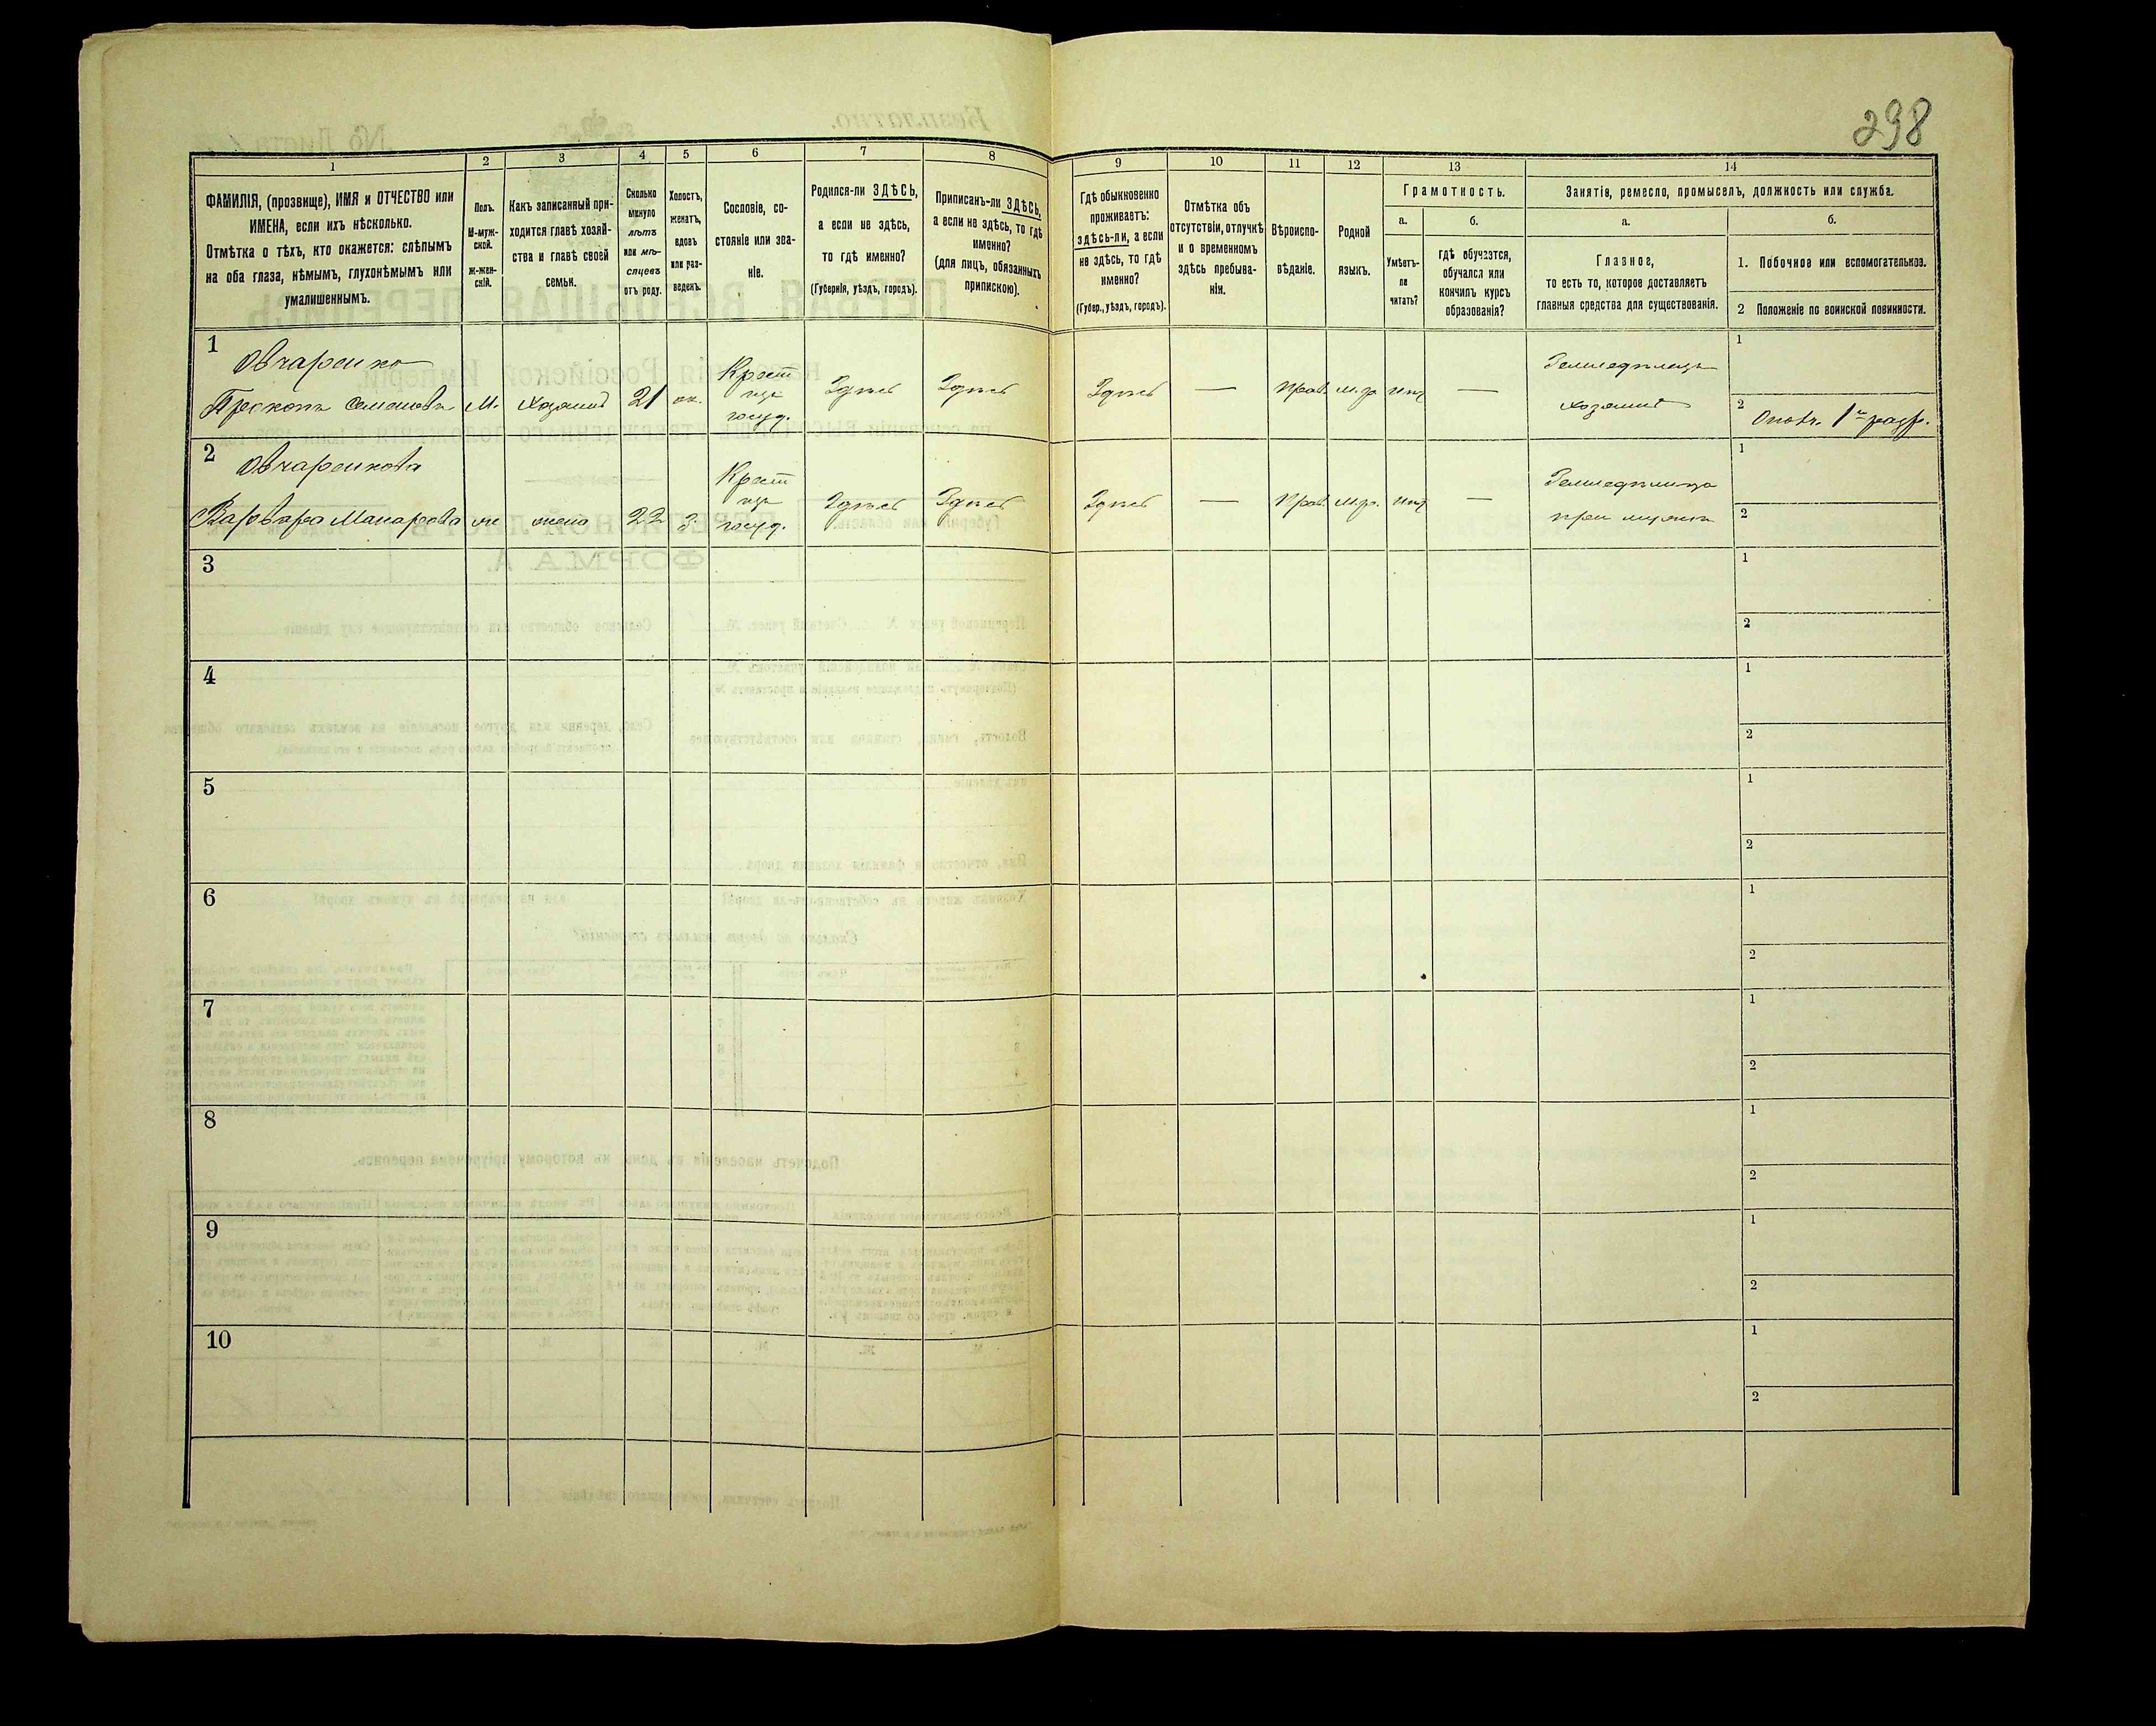 298
1
2
3
4
5
6
7
8
9
10
11
12
13
14
ФАМИЛІЯ, (прозвище), ИМЯ и ОТЧЕСТВО или
ИМЕНА, если ихъ нѣсколько.
Отмѣтка о тѣхъ, кто окажется: слѣпымъ
на оба глаза, нѣмымъ, глухонѣмымъ или
умалишеннымъ.
Полъ.
М-муж-
ской.
Ж-жен-
скій.
Какъ записанный при-
ходится главѣ хозяй-
ства и главѣ своей
семьи.
Сколько
минуло
лѣтъ
или мѣ-
сяцевъ
отъ роду.
Холостъ,
женатъ,
вдовъ
или раз-
веденъ.
Сословіе, со-
стояніе или зва-
ніе.
Родился-ли ЗДѢСЬ,
а если не здѣсь,
то гдѣ именно?
(Губернія, уѣздъ, городъ).
Приписанъ-ли ЗДѢСЬ,
а если не здѣсь, то гдѣ
именно?
(для лицъ, обязанныхъ
припискою).
Гдѣ обыкновенно
проживаетъ:
здѣсь-ли, а если
не здѣсь, то гдѣ
именно?
(Губер., уѣздъ, городъ).
Отмѣтка объ
отсутствіи, отлучкѣ
и о временномъ
здѣсь пребыва-
ніи.
Вѣроиспо-
вѣданіе.
Родной
языкъ.
Грамотность.
а.
Умѣетъ-
ли
читать?
б.
гдѣ обучается,
обучался или
кончилъ курсъ
образованія?
Занятіе, ремесло, промыселъ, должность или служба.
а.
Главное,
то есть то, которое доставляетъ
главныя средства для существованія.
б.
1. Побочное или вспомогательное.
2 Положеніе по воинской повинности.
1
Овчаренко
Прокопъ Семеновъ М. хозяинъ 21 ж. Крест изъ госуд. Здѣсь Здѣсь Здѣсь — Прав. м.р. нѣт —
Земледѣлецъ
хозяинъ
1
2 Ополч. 1го разр.
2
Овчаренкова
Варвара Макарова ж жена 22 з. Крест изъ госуд. Здѣсь Здѣсь Здѣсь — Прав. м.р. нѣт —
Земледѣлица
при мужѣ
1
2
3
1
2
4
1
2
5
1
2
6
1
2
7
1
2
8
1
2
9
1
2
10
1
2